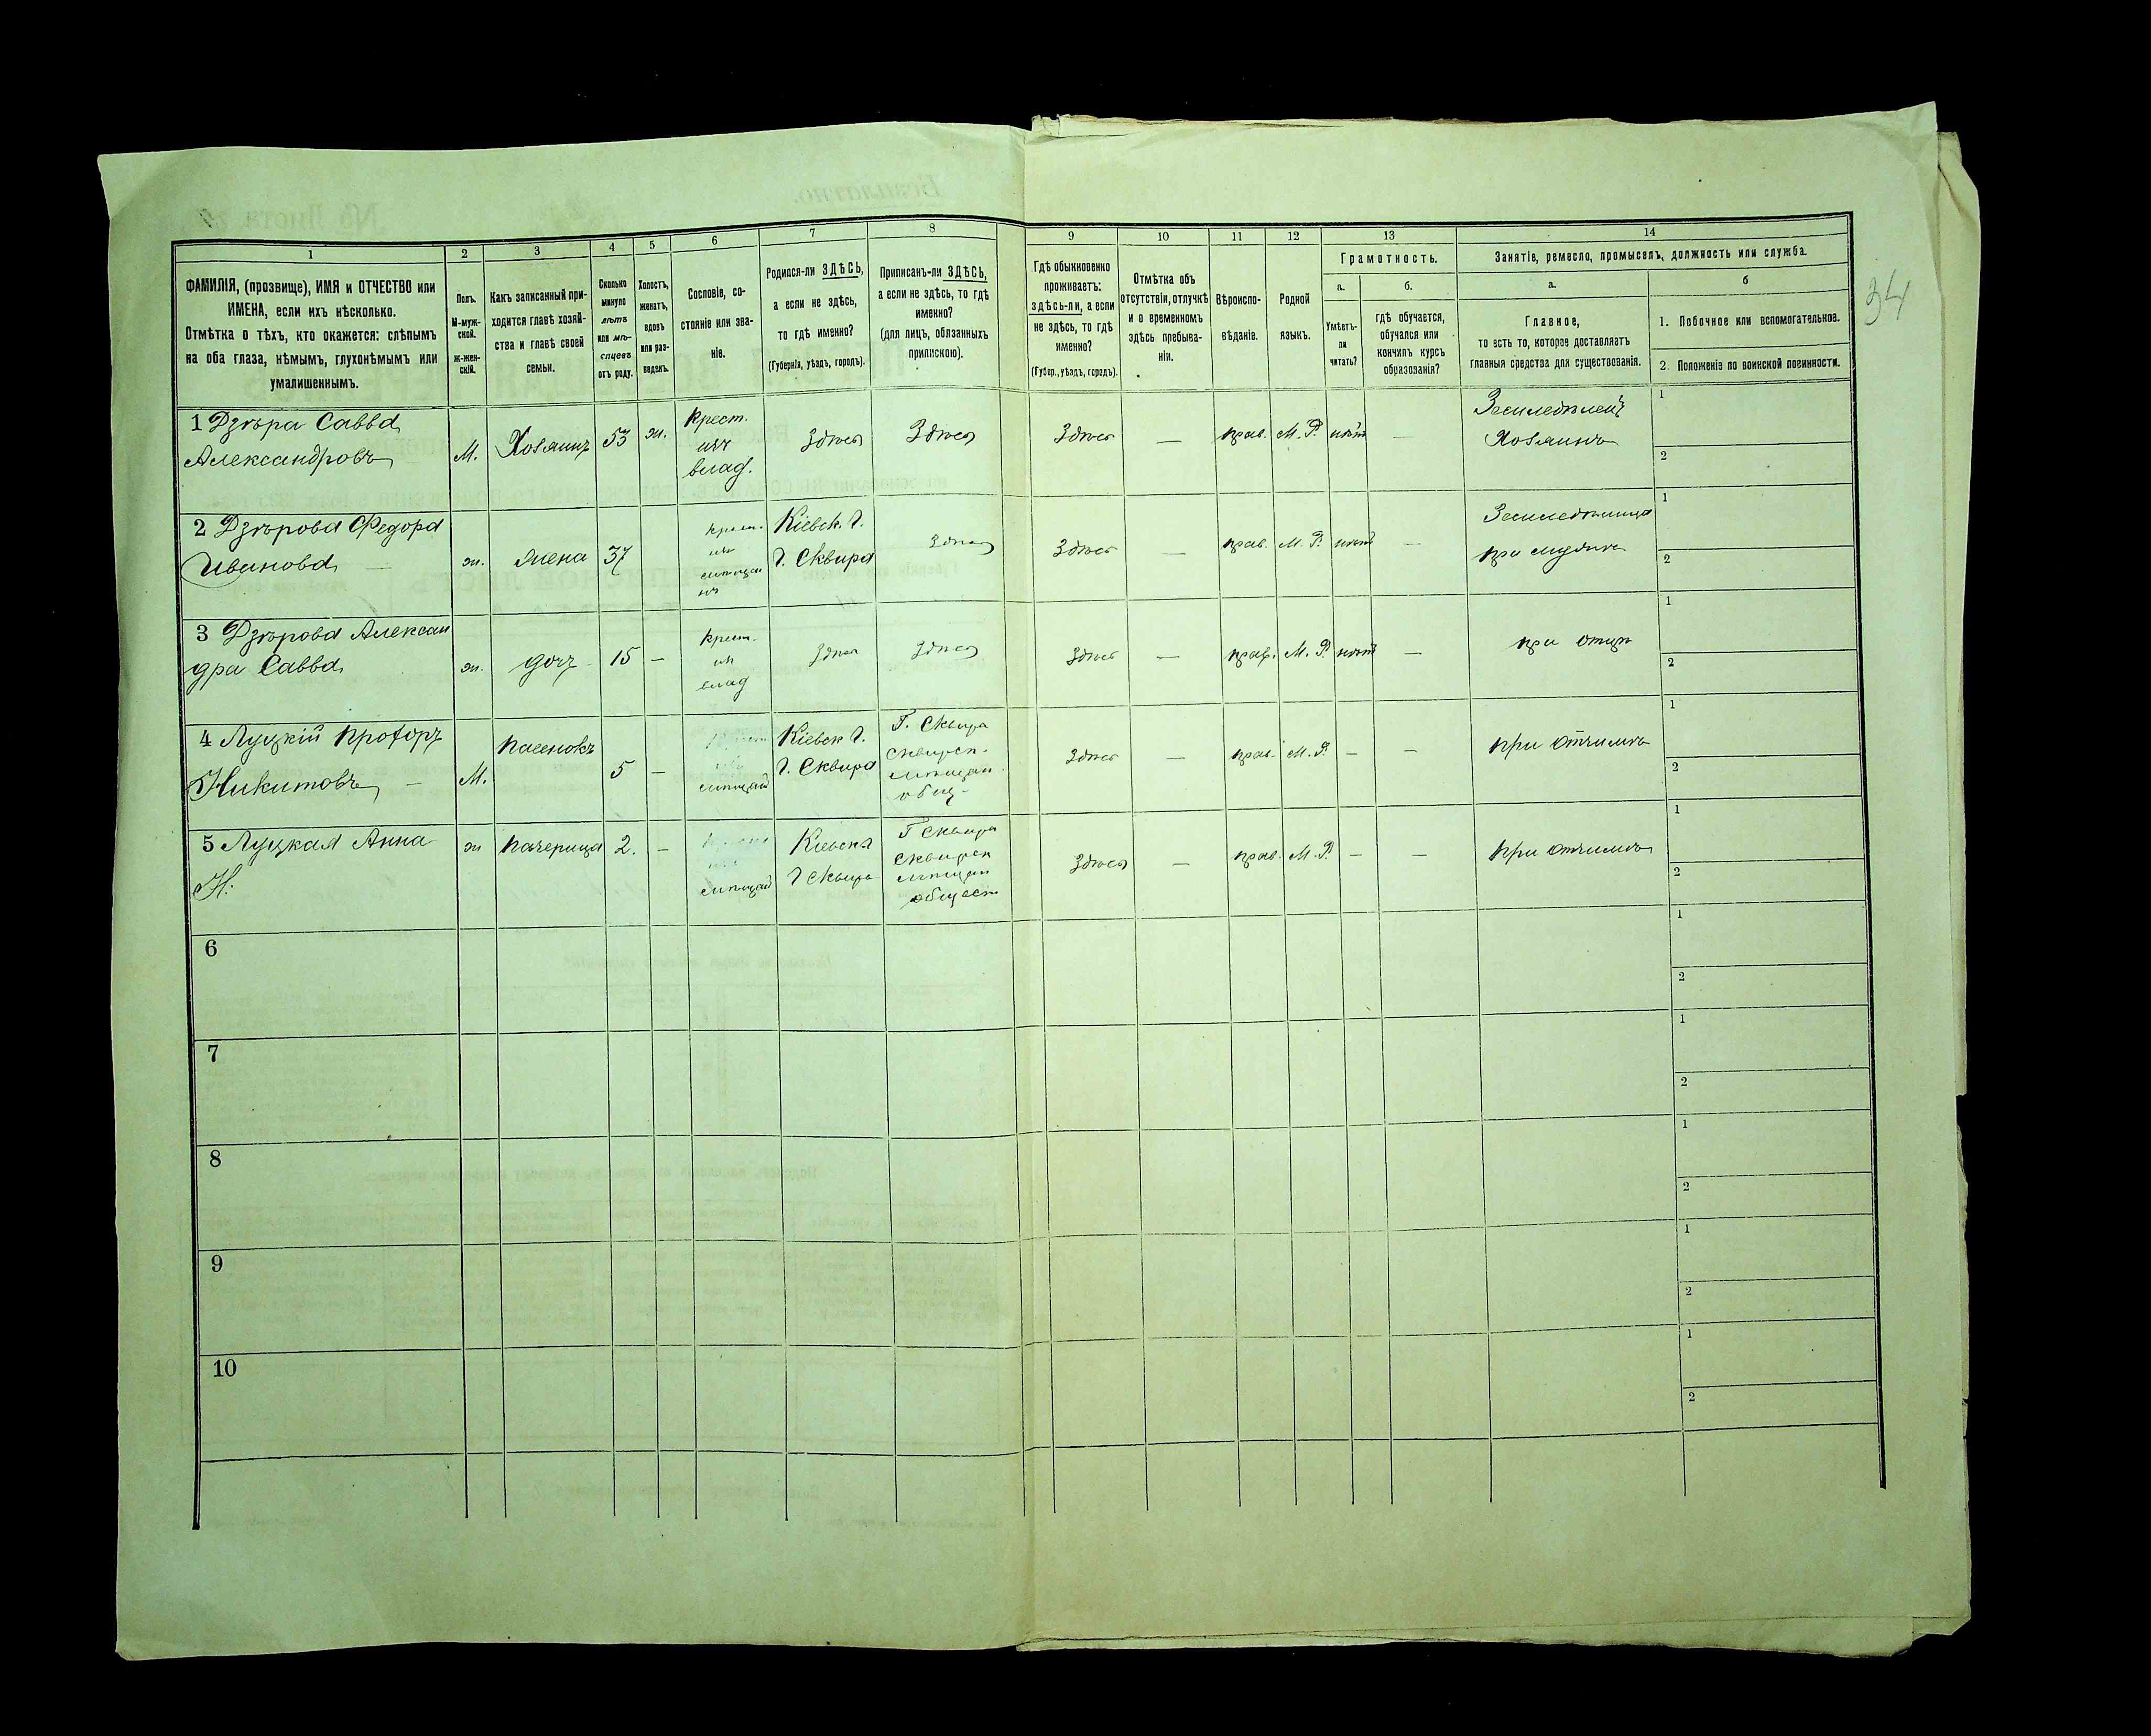 34
1
2
3
4
5
6
7
8
9
10
11
12
13
14
ФАМИЛІЯ, (прозвище), ИМЯ и ОТЧЕСТВО или
ИМЕНА, если ихъ нѣсколько.
Отмѣтка о тѣхъ, кто окажется: слѣпымъ
на оба глаза, нѣмымъ, глухонѣмымъ или
умалишеннымъ.
Полъ.
М-муж-
ской.
ж-жен-
скій.
Какъ записанный при-
ходится главѣ хозяй-
ства и главѣ своей
семьи.
Сколько
минуло
лѣтъ
или мѣ-
сяцевъ
отъ роду.
Холостъ,
женатъ,
вдовъ
или раз-
веденъ.
Сословіе, со-
стояніе или зва-
ніе.
Родился-ли ЗДѢСЬ,
а если не здѣсь,
то гдѣ именно?
(Губернія, уѣздъ, городъ).
Приписанъ-ли ЗДѢСЬ,
а если не здѣсь, то гдѣ
именно?
(для лицъ, обязанныхъ
припискою).
Гдѣ обыкновенно
проживаетъ:
здѣсь-ли, а если
не здѣсь, то гдѣ
именно?
(Губер., уѣздъ, городъ).
Отмѣтка объ
отсутствіи, отлучкѣ
и о временномъ
здѣсь пребыва-
ніи.
Вѣроиспо-
вѣданіе.
Родной
языкъ.
Грамотность.
а.
Умѣетъ-
ли
читать?
б.
гдѣ обучается,
обучался или
кончилъ курсъ
образованія?
Занятіе, ремесло, промыселъ, должность или служба.
а.
Главное,
то есть то, которое доставляетъ
главныя средства для существованія.
б
1. Побочное или вспомогательное.
2. Положеніе по воинской повинности.
1 Дзѣра Савва
Александровъ
М.
Хозяинъ
53
ж.
крест.
изъ
влад.
Здѣсь
Здѣсь
Здѣсь
—
прав.
М. Р.
нѣтъ
—
Хозяинъ
1
2
2 Дзѣрова Федора
Иванова
ж.
жена
37
крест.
изъ
Кіевск. г.
г. Сквира
Здѣсь
Здѣсь
—
прав.
М. Р.
нѣтъ
—
при мужѣ
1
2
3 Дзѣрова Алексан
дра Савва
ж.
дочь
15
—
крест.
изъ
влад
Здѣсь
Здѣсь
Здѣсь
—
прав.
М. Р.
нѣтъ
—
при отцѣ
1
2
4 Луцкій Прохоръ
Никитовъ
М.
пасынокъ
5
—
мѣщан
Кіевск г.
г. Сквира
Г. Сквира
сквирск.
мѣщан.
общ.
Здѣсь
—
прав.
М. Р.
—
—
при отчимѣ
1
2
5 Луцкая Анна
Н.
ж
пачерица
2.
—
мѣщан
Кіевск г
г Сквира
Г Сквира
сквирск
мѣщан
общест
Здѣсь
—
прав.
М. Р.
—
—
при отчимѣ
1
2
6
1
2
7
1
2
8
1
2
9
1
2
10
1
2